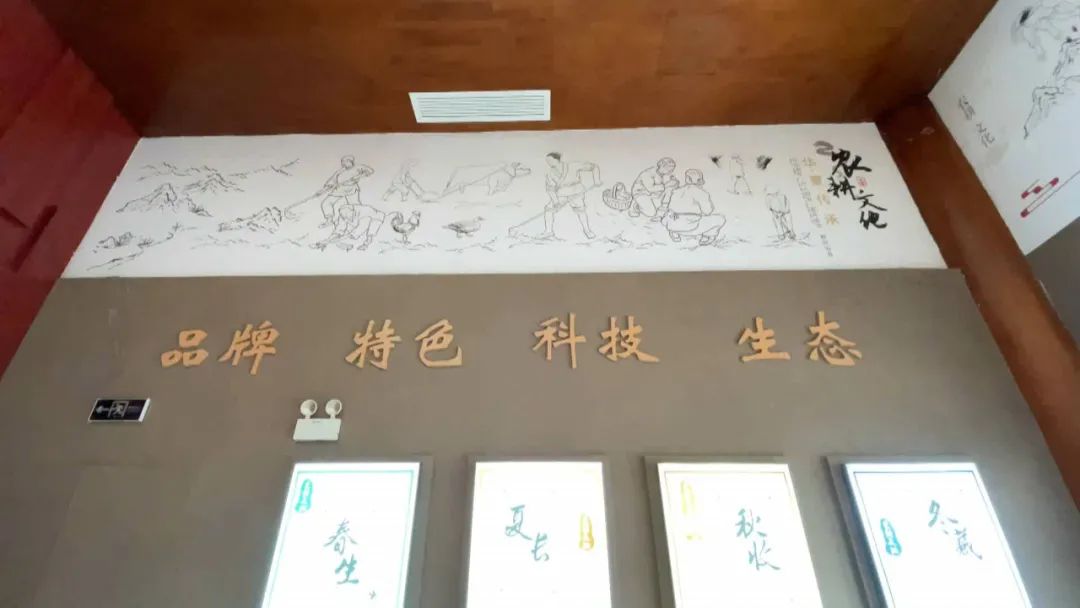 农耕文化
传承
文化
品牌 特色 科技 生态
春生
夏长
秋收
冬藏